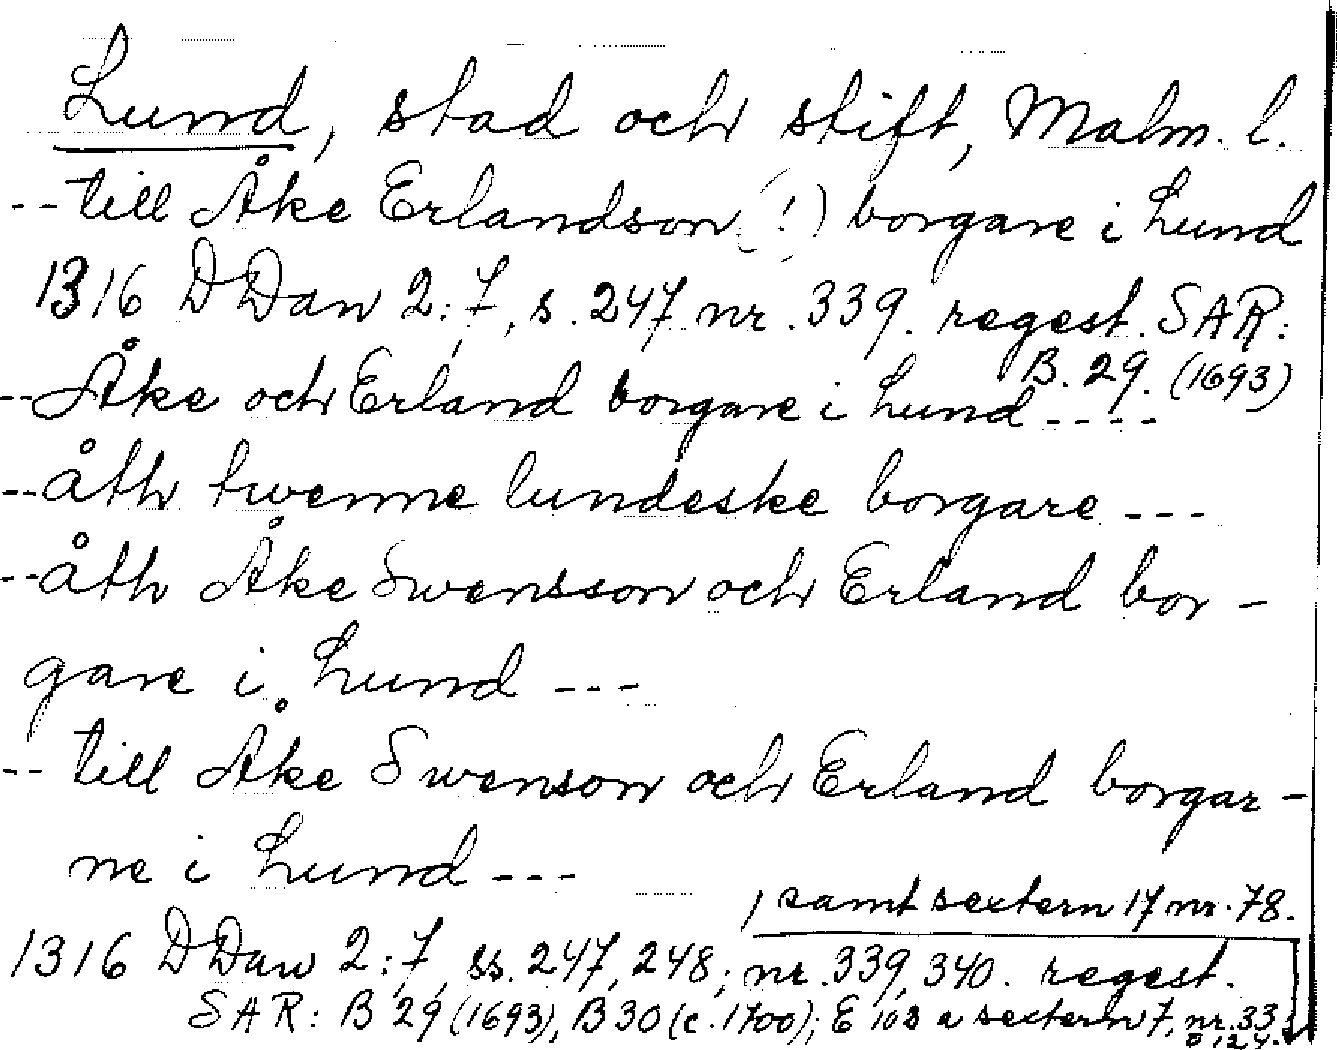 Lund, stad och stift, Malm. l.
-- till Åke Erlandson (!) borgare i Lund
1316 DDan 2:7, s. 247 nr. 339. regest. SAR:
B. 29. (1693)
-- Åke och Erland borgare i Lund ----
-- åth twenne lundeske borgare ---
-- åth Åke Swensson och Erland bor-
gare i Lund ---
-- till Åke Swenson och Erland borgar-
ne i Lund ---
, samt sextern 17 nr. 78.
1316 DDan 2:7, ss. 247, 248; nr. 339, 340. regest.
SAR: B 29 (1693), B 30 (c. 1700); E 103 a sextern 7, nr. 33